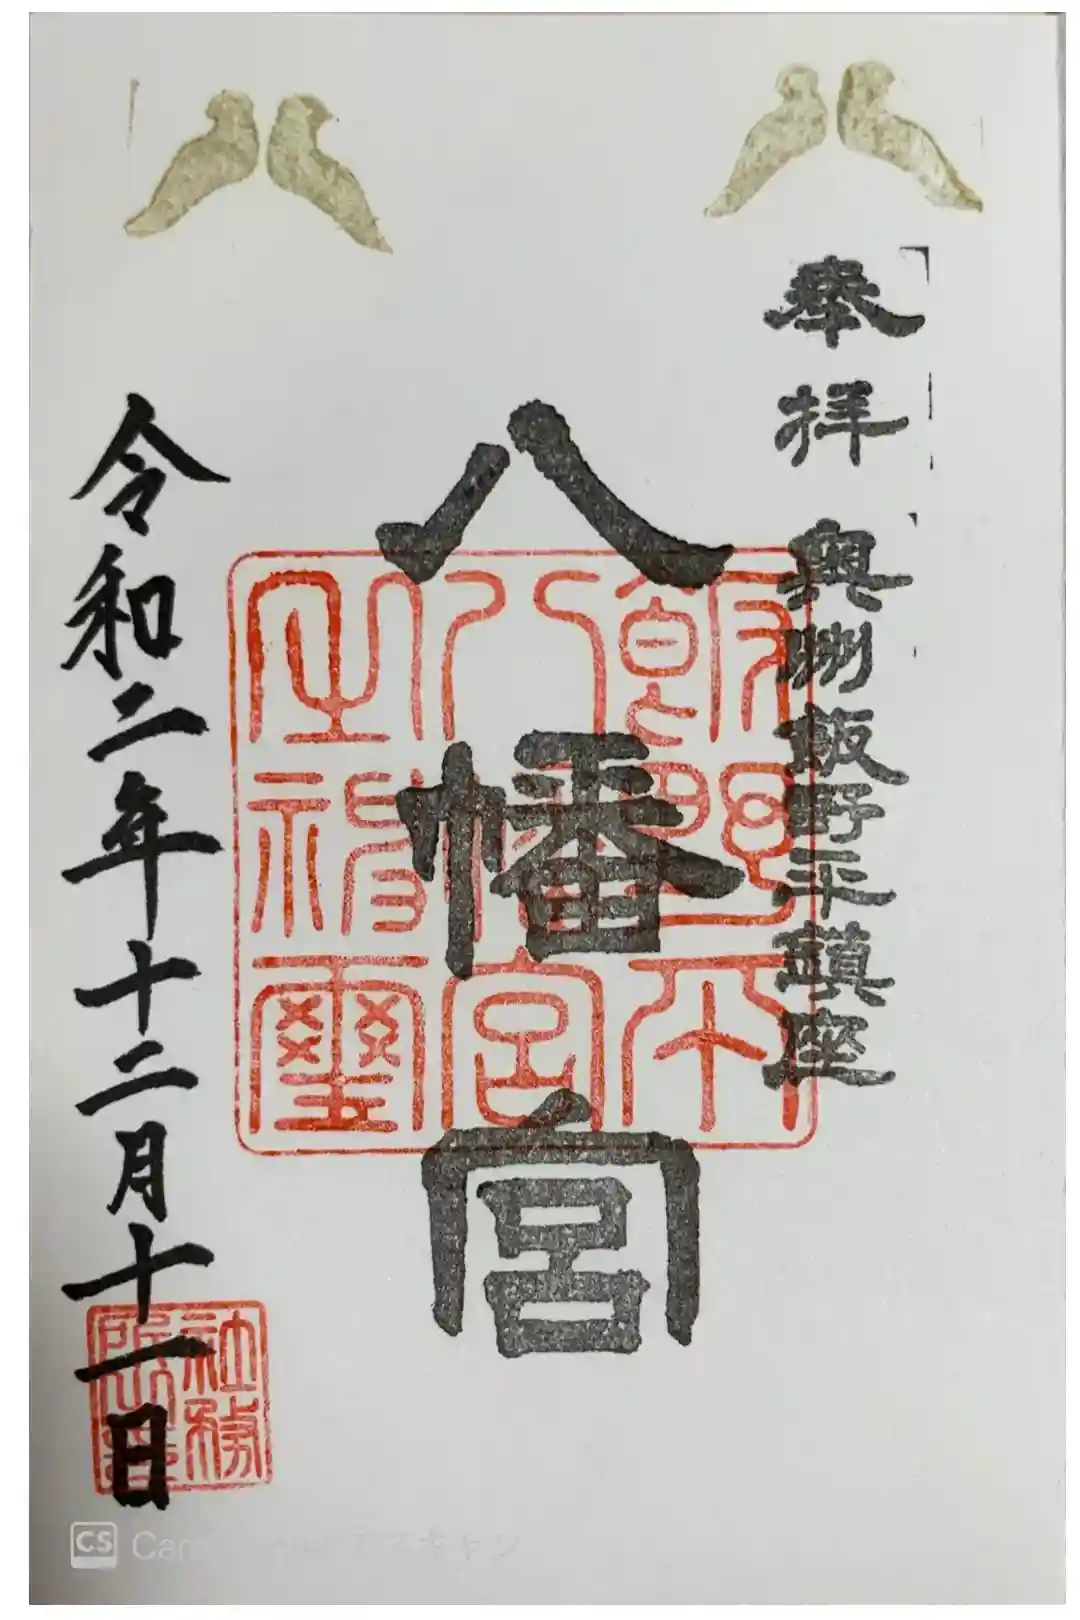 奉拝 奥州飯野平鎮座
八幡宮
飯野平
八幡宮
之神璽
令和二年十二月十一日
社務
所之章
CS CamScannerでスキャン